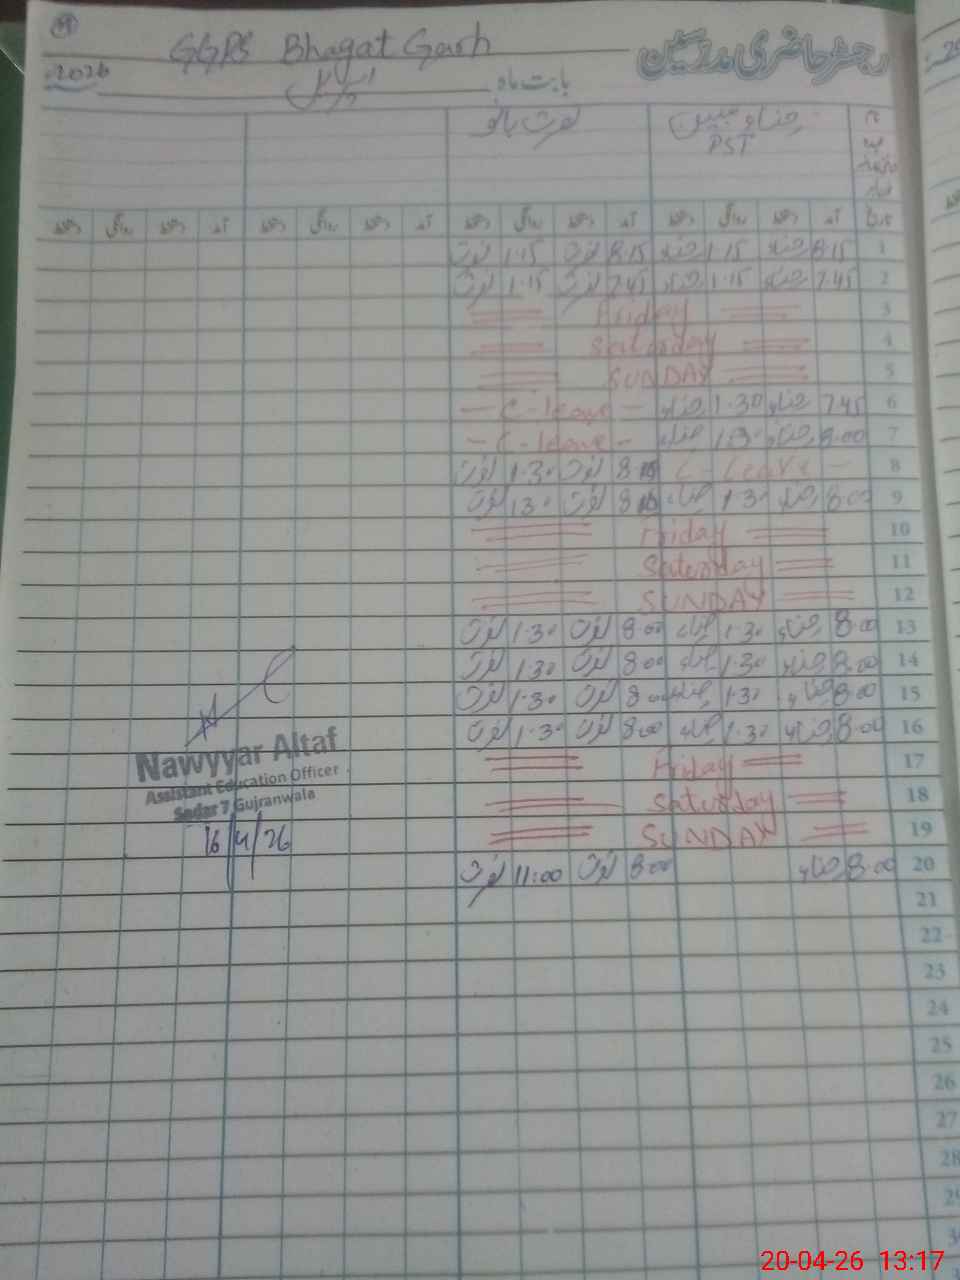 GGPS Bhagat Garh رجسٹر حاضری مدرسین
2026 بابت ماہ اپریل
نصرت بانو
PST
تاریخ آمد دستخط روانگی دستخط آمد دستخط روانگی دستخط آمد دستخط روانگی دستخط آمد دستخط روانگی دستخط
1 8.15 1.15 8.15 نصرت 1.15 نصرت
2 7.45 1.15 7.45 نصرت 1.15 نصرت
3 Friday
4 Saturday
5 SUNDAY
6 7.45 1.30 C-leave
7 8.00 1.30 C-leave
8 C-Leave 8.15 نصرت 1.30 نصرت
9 8.00 1.30 نصرت 1.30 نصرت
10 Friday
11 Saturday
12 SUNDAY
13 8.00 1.30 8.00 نصرت 1.30 نصرت
14 8.00 1.30 8.00 نصرت 1.30 نصرت
15 8.00 1.30 8.00 نصرت 1.30 نصرت
16 8.00 1.30 8.00 نصرت 1.30 نصرت
17 Friday
18 Saturday
19 SUNDAY
20 8.00 8.00 نصرت 11:00 نصرت
21
22
23
24
25
26
27
28
29
Nawyyar Altaf
Assistant Education Officer
Sadar 7 Gujranwala
16/4/26
20-04-26 13:17